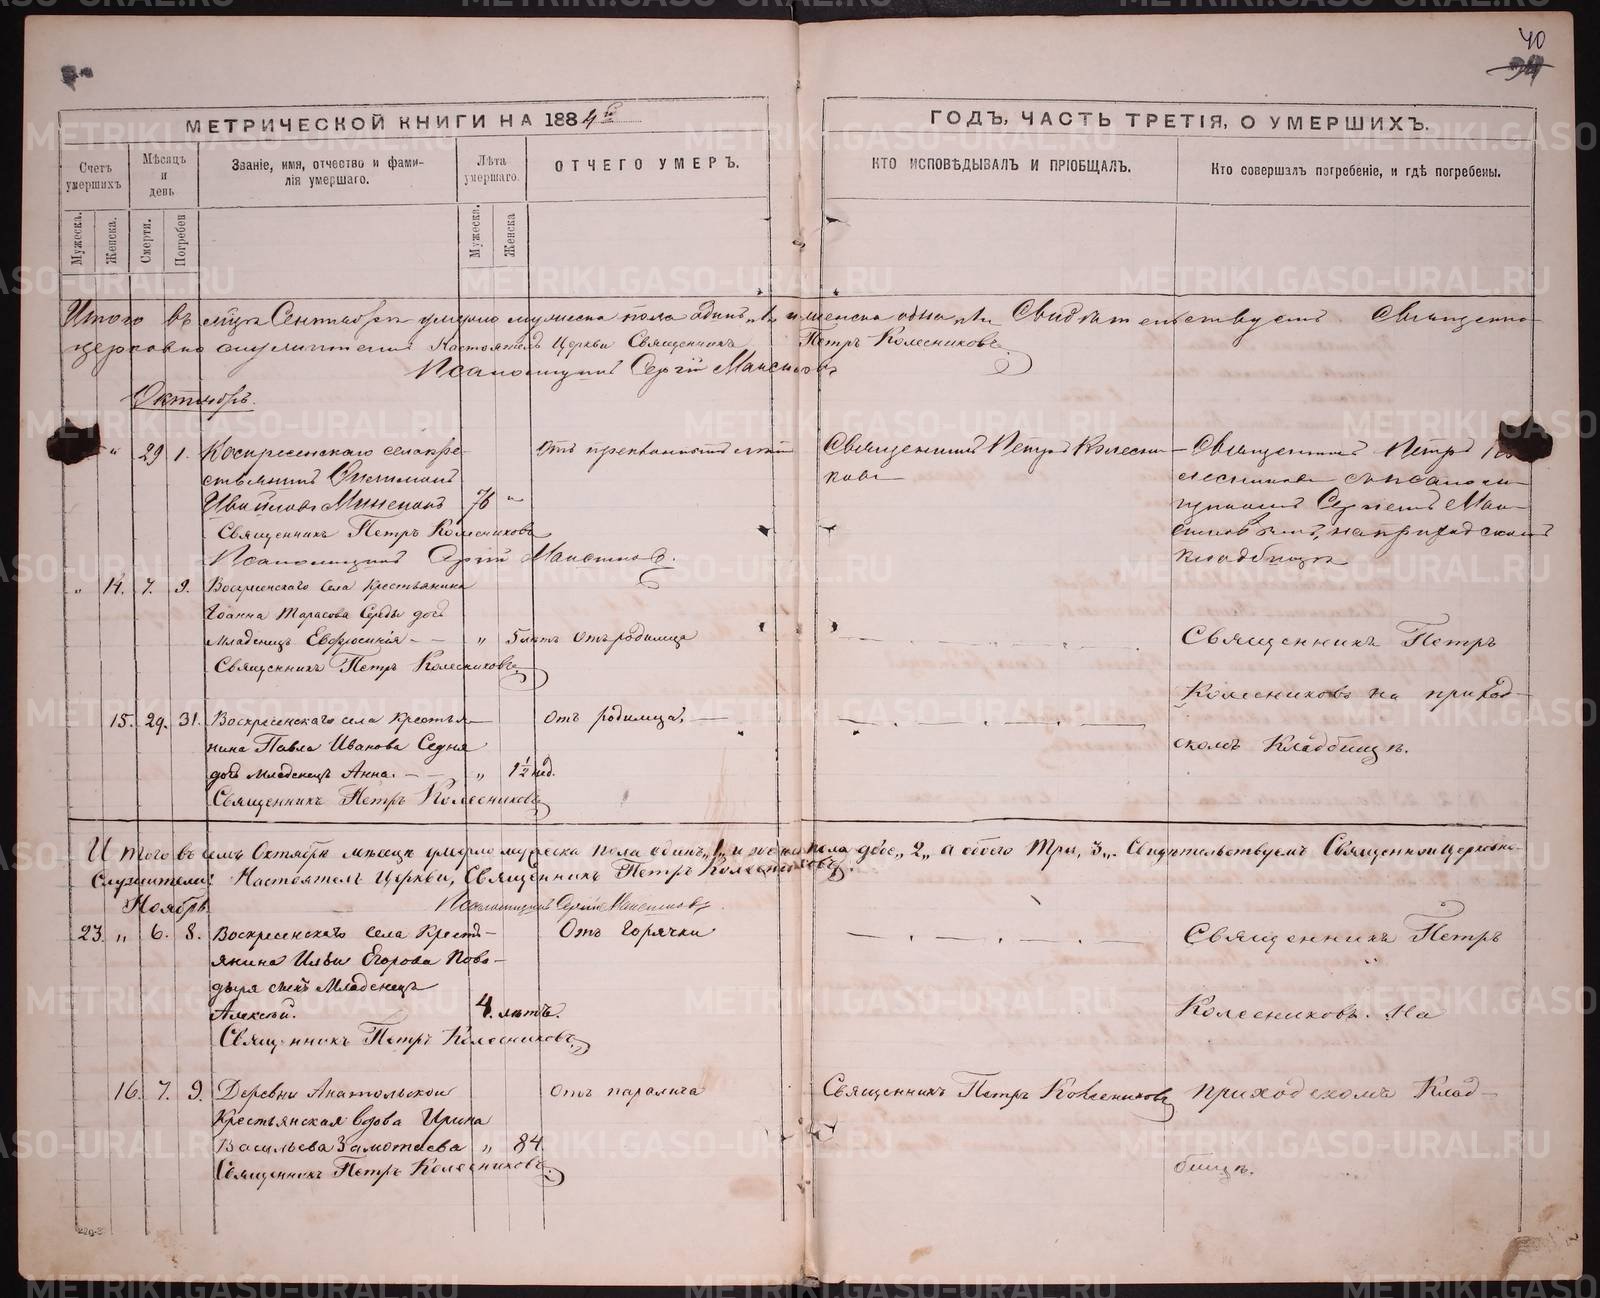 40
МЕТРИЧЕСКОЙ КНИГИ НА 1884й
ГОДЪ, ЧАСТЬ ТРЕТІЯ, О УМЕРШИХЪ.
Счетъ умершихъ
Мѣсяцъ и день
Званіе, имя, отчество и фами-
лія умершаго.
Лѣта умершаго.
ОТЧЕГО УМЕРЪ.
КТО ИСПОВѢДЫВАЛЪ И ПРІОБЩАЛЪ.
Кто совершалъ погребеніе, и гдѣ погребены.
Мужеска.
Женска.
Смерти.
Погребен
Мужеска.
Женска
Итого въ Сентябрѣ умерло мужеска пола одинъ „1„ и женска одна „1„ Свидѣтельствуемъ Священно-
церковно служители: Настоятель Церкви Священникъ Петръ Колесниковъ
Псаломщикъ Сергій
Октябрь.
" 29 1. Воскресенскаго села кре-
стьянинъ
76 "
Священникъ Петръ Колесни-
кова
Священникъ Петръ Ко-
лесниковъ съ псалом-
щикомъ Сергіемъ
на приходскомъ
кладбищѣ
Священникъ Петръ Колесниковъ
Псаломщикъ Сергій
" 14. 7. 9. Воскресенскаго Села Крестьянина
Іоанна Тарасова дочь
Младенецъ Евфросинія - - " 5 лѣтъ Отъ родимца
Священникъ Петръ Колесниковъ
Священникъ Петръ
Колесниковъ на приход-
скомъ Кладбищѣ.
15. 29. 31. Воскресенскаго села Крестья-
нина Павла Иванова Седня
дочь младенецъ Анна. - - " 1½ нед.
Отъ родимца.
Священникъ Петръ Колесниковъ
Итого въ Октябрѣ мѣсяцѣ умерло мужеска пола одинъ „1„ и женска пола двѣ „2„ а обоего Три „3„. Свидѣтельствуемъ Священноцерковно-
Служители: Настоятель Церкви, Священникъ Петръ Колесниковъ.
Псаломщикъ Сергій
Ноябрь
23. " 6. 8. Воскресенскаго села Кресть-
янина Ильи Егорова Пова-
дыря сынъ Младенецъ
Алексѣй. 4. лѣтъ.
Отъ Горячки
Священникъ Петръ Колесниковъ
Священникъ Петръ
Колесниковъ. На
приходскомъ Клад-
бищѣ.
16. 7. 9. Деревни Анатольской
Крестьянская вдова Ирина
Васильева Замотаева " 84
Отъ паралича
Священникъ Петръ Колесниковъ
Священникъ Петръ Колесниковъ
METRIKI.GASO-URAL.RU